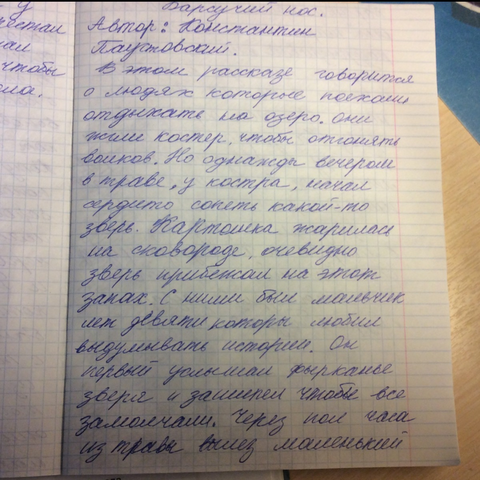 у
чтобы
Барсучий нос.
Автор: Константин
Паустовский.
В этом рассказе говорится
о людях которые поехали
отдыхать на озеро. они
жгли костер, чтобы отгонять
волков. Но однажды вечером
в траве, у костра, начал
сердито сопеть какой-то
зверь. Картошка жарилась
на сковороде, очевидно
зверь прибежал на этот
запах. С ними был мальчик
лет девяти которы любил
выдумывать истории. Он
первый услышал фырканье
зверя и зашипел чтобы все
замолчали. Через пол часа
из травы вылез маленький